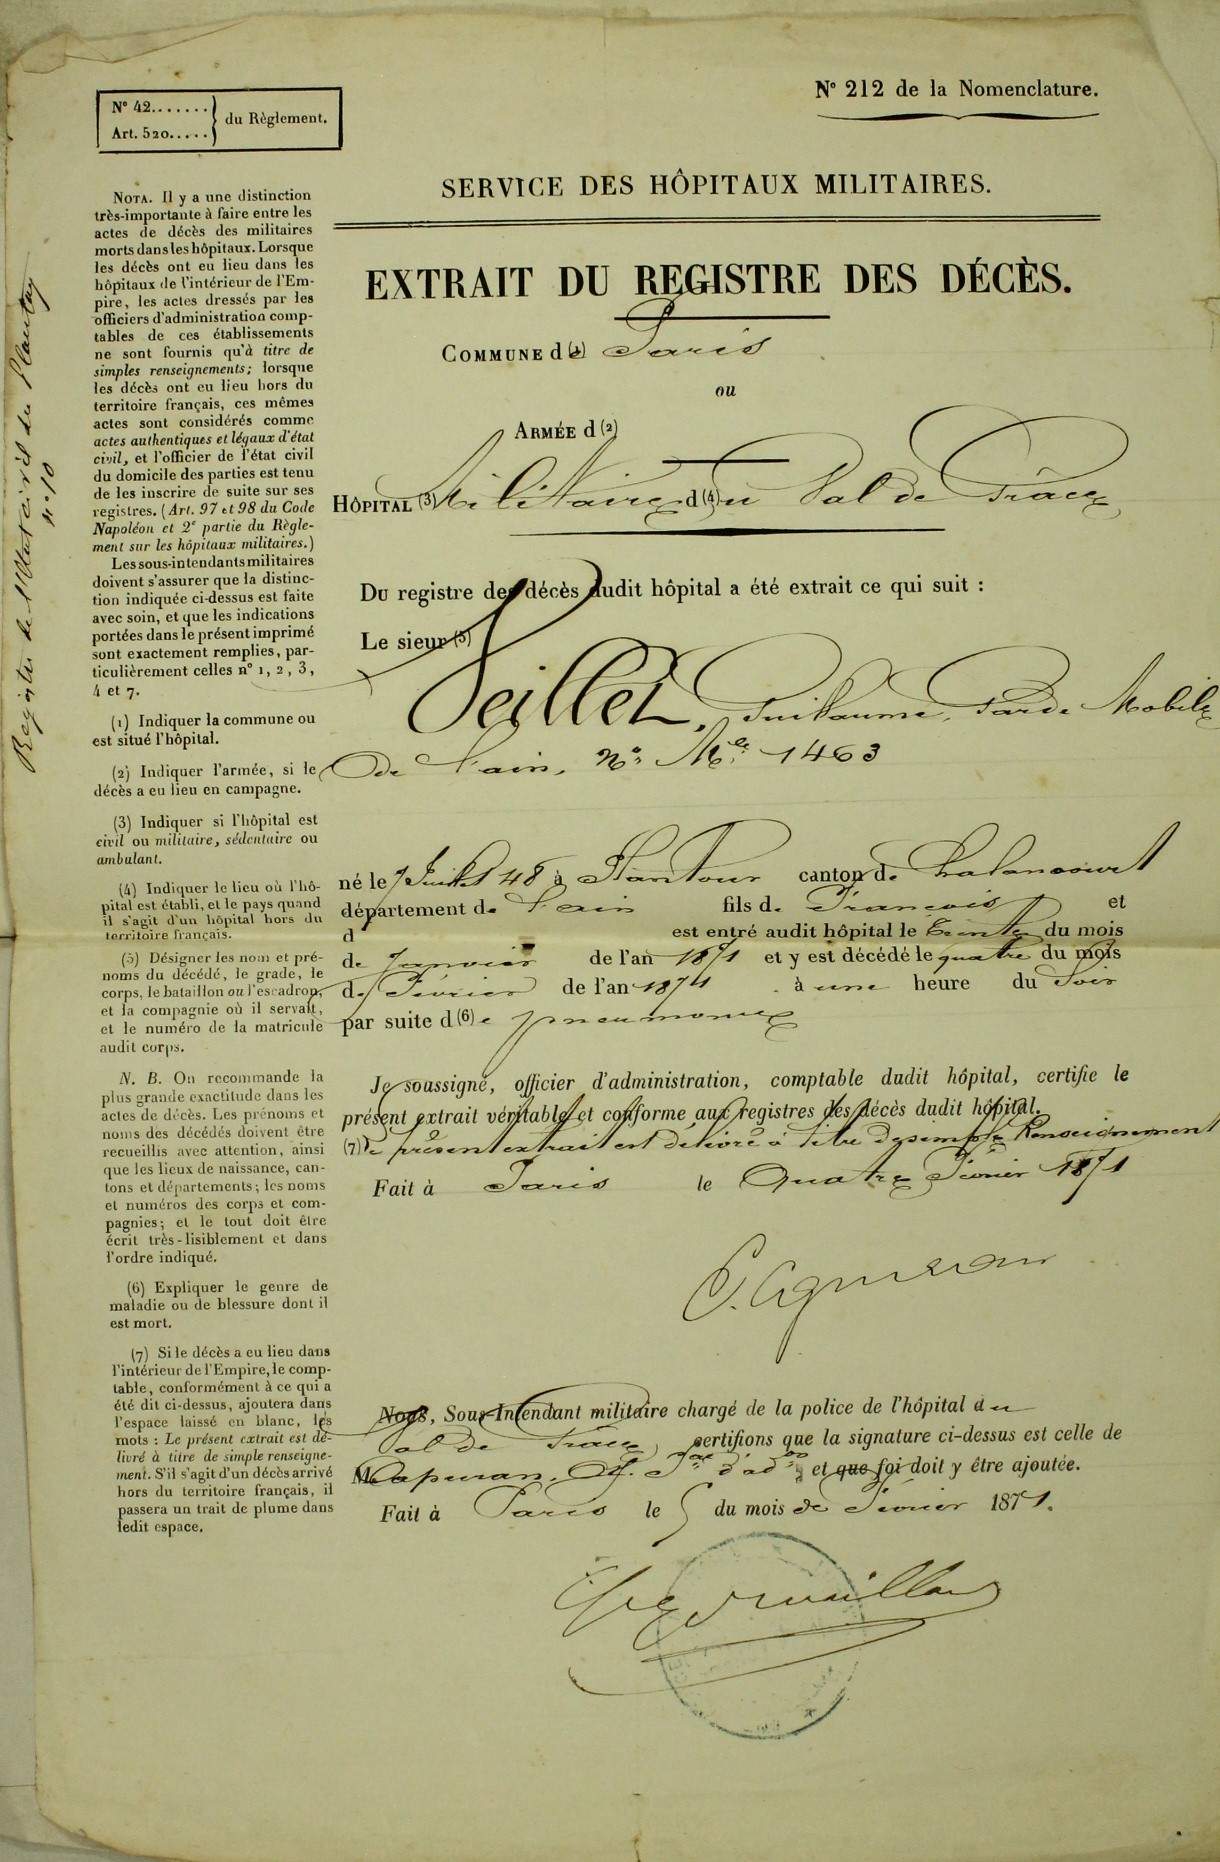 N° 42.......
Art. 520.....
du Règlement.
N° 212 de la Nomenclature.
SERVICE DES HÔPITAUX MILITAIRES.
EXTRAIT DU REGISTRE DES DÉCÈS.
COMMUNE d (1) Paris
ou
ARMÉE d (2)
HÔPITAL (3) Militaire d (4) u Val de Grâce
Du registre des décès dudit hôpital a été extrait ce qui suit :
Le sieur (5)
Seillet, Guillaume, Garde Mobile
de l'ain, N° Mle 1463
né le 7 Juillet 48 à Plantour canton de Chalancourt
département de l'ain fils de François et
d est entré audit hôpital le trente du mois
de Janvier de l'an 1871 et y est décédé le quatre du mois
de Février de l'an 1871 à une heure du Soir
par suite d (6) e pneumonie
Je soussigné, officier d'administration, comptable dudit hôpital, certifie le
présent extrait véritable et conforme aux registres des décès dudit hôpital.
(7) Le présent extrait est délivré à titre de simple Renseignement
Fait à Paris le Quatre Février 1871
Nous, Sous-Intendant militaire chargé de la police de l'hôpital du
Val de Grâce, certifions que la signature ci-dessus est celle de
M. et que foi doit y être ajoutée.
Fait à Paris le 5 du mois de Février 1871.
NOTA. Il y a une distinction
très-importante à faire entre les
actes de décès des militaires
morts dans les hôpitaux. Lorsque
les décès ont eu lieu dans les
hôpitaux de l'intérieur de l'Em-
pire, les actes dressés par les
officiers d'administration comp-
tables de ces établissements
ne sont fournis qu'à titre de
simples renseignements; lorsque
les décès ont eu lieu hors du
territoire français, ces mêmes
actes sont considérés comme
actes authentiques et légaux d'état
civil, et l'officier de l'état civil
du domicile des parties est tenu
de les inscrire de suite sur ses
registres. (Art. 97 et 98 du Code
Napoléon et 2e partie du Règle-
ment sur les hôpitaux militaires.)
Les sous-intendants militaires
doivent s'assurer que la distinc-
tion indiquée ci-dessus est faite
avec soin, et que les indications
portées dans le présent imprimé
sont exactement remplies, par-
ticulièrement celles n° 1, 2, 3,
4 et 7.
(1) Indiquer la commune ou
est situé l'hôpital.
(2) Indiquer l'armée, si le
décès a eu lieu en campagne.
(3) Indiquer si l'hôpital est
civil ou militaire, sédentaire ou
ambulant.
(4) Indiquer le lieu où l'hô-
pital est établi, et le pays quand
il s'agit d'un hôpital hors du
territoire français.
(5) Désigner les nom et pré-
noms du décédé, le grade, le
corps, le bataillon ou l'escadron,
et la compagnie où il servait,
et le numéro de la matricule
audit corps.
N. B. On recommande la
plus grande exactitude dans les
actes de décès. Les prénoms et
noms des décédés doivent être
recueillis avec attention, ainsi
que les lieux de naissance, can-
tons et départements; les noms
et numéros des corps et com-
pagnies; et le tout doit être
écrit très-lisiblement et dans
l'ordre indiqué.
(6) Expliquer le genre de
maladie ou de blessure dont il
est mort.
(7) Si le décès a eu lieu dans
l'intérieur de l'Empire, le comp-
table, conformément à ce qui a
été dit ci-dessus, ajoutera dans
l'espace laissé en blanc, les
mots : Le présent extrait est dé-
livré à titre de simple renseigne-
ment. S'il s'agit d'un décès arrivé
hors du territoire français, il
passera un trait de plume dans
ledit espace.
Registre de l'Etat civil du Plantay
n° 10